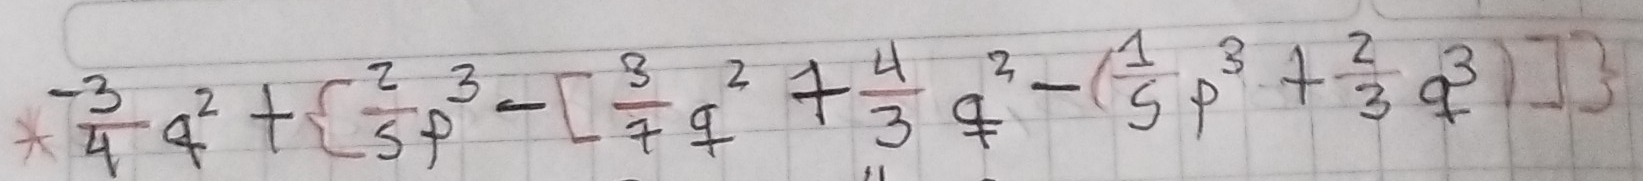 * -3/4 q² + {2/5 p³ - [3/7 q² + 4/3 q² - (1/5 p³ + 2/3 q³)]}